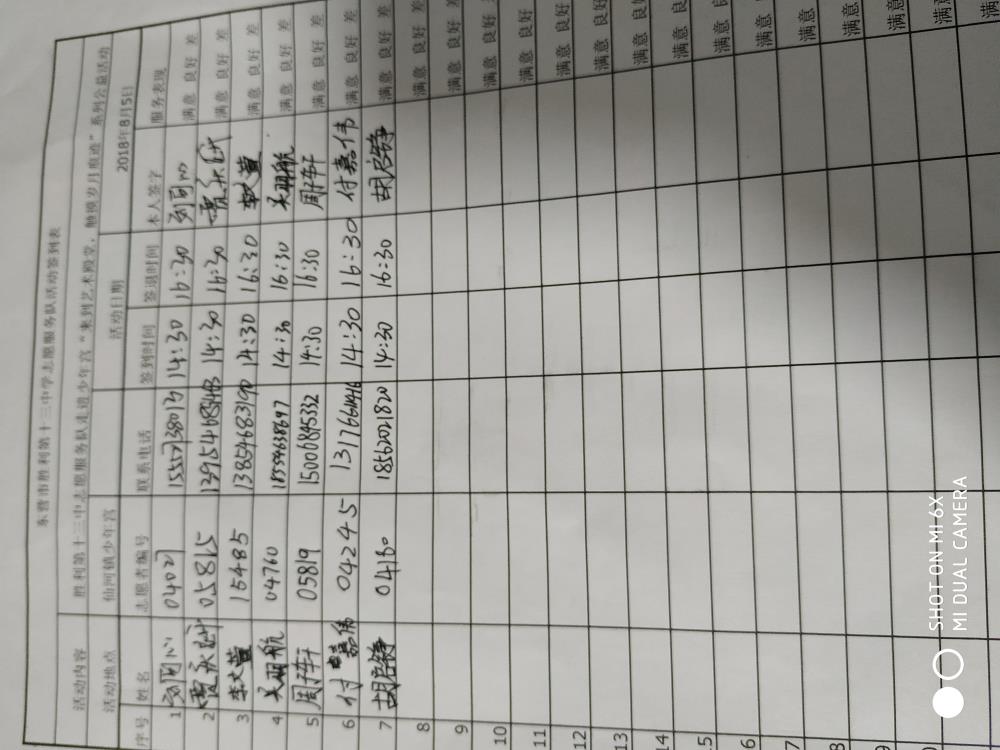 东营市胜利第十三中学志愿服务队活动签到表
活动内容 胜利第十三中志愿服务队走进少年宫"来到艺术殿堂，触摸岁月痕迹"系列公益活动
活动地点 仙河镇少年宫 活动日期 2018年8月5日
序号 姓名 志愿者编号 联系电话 签到时间 签退时间 本人签字 服务表现
1 04021 14:30 16:30 满意 良好 差
2 05815 14:30 16:30 满意 良好 差
3 15485 13854683190 14:30 16:30 满意 良好 差
4 吴明航 04760 18354638697 14:30 16:30 吴明航 满意 良好 差
5 05819 15006845332 14:30 16:30 满意 良好 差
6 付嘉伟 04245 14:30 16:30 付嘉伟 满意 良好 差
7 胡启铮 04180 18562021820 14:30 16:30 胡启铮 满意 良好 差
8 满意 良好 差
9 满意 良好 差
10 满意 良好
11 满意 良好
12 满意 良好
13 满意 良好
14 满意 良好
15 满意 良
满意
满意
满意
满意
满意
SHOT ON MI 6X
MI DUAL CAMERA